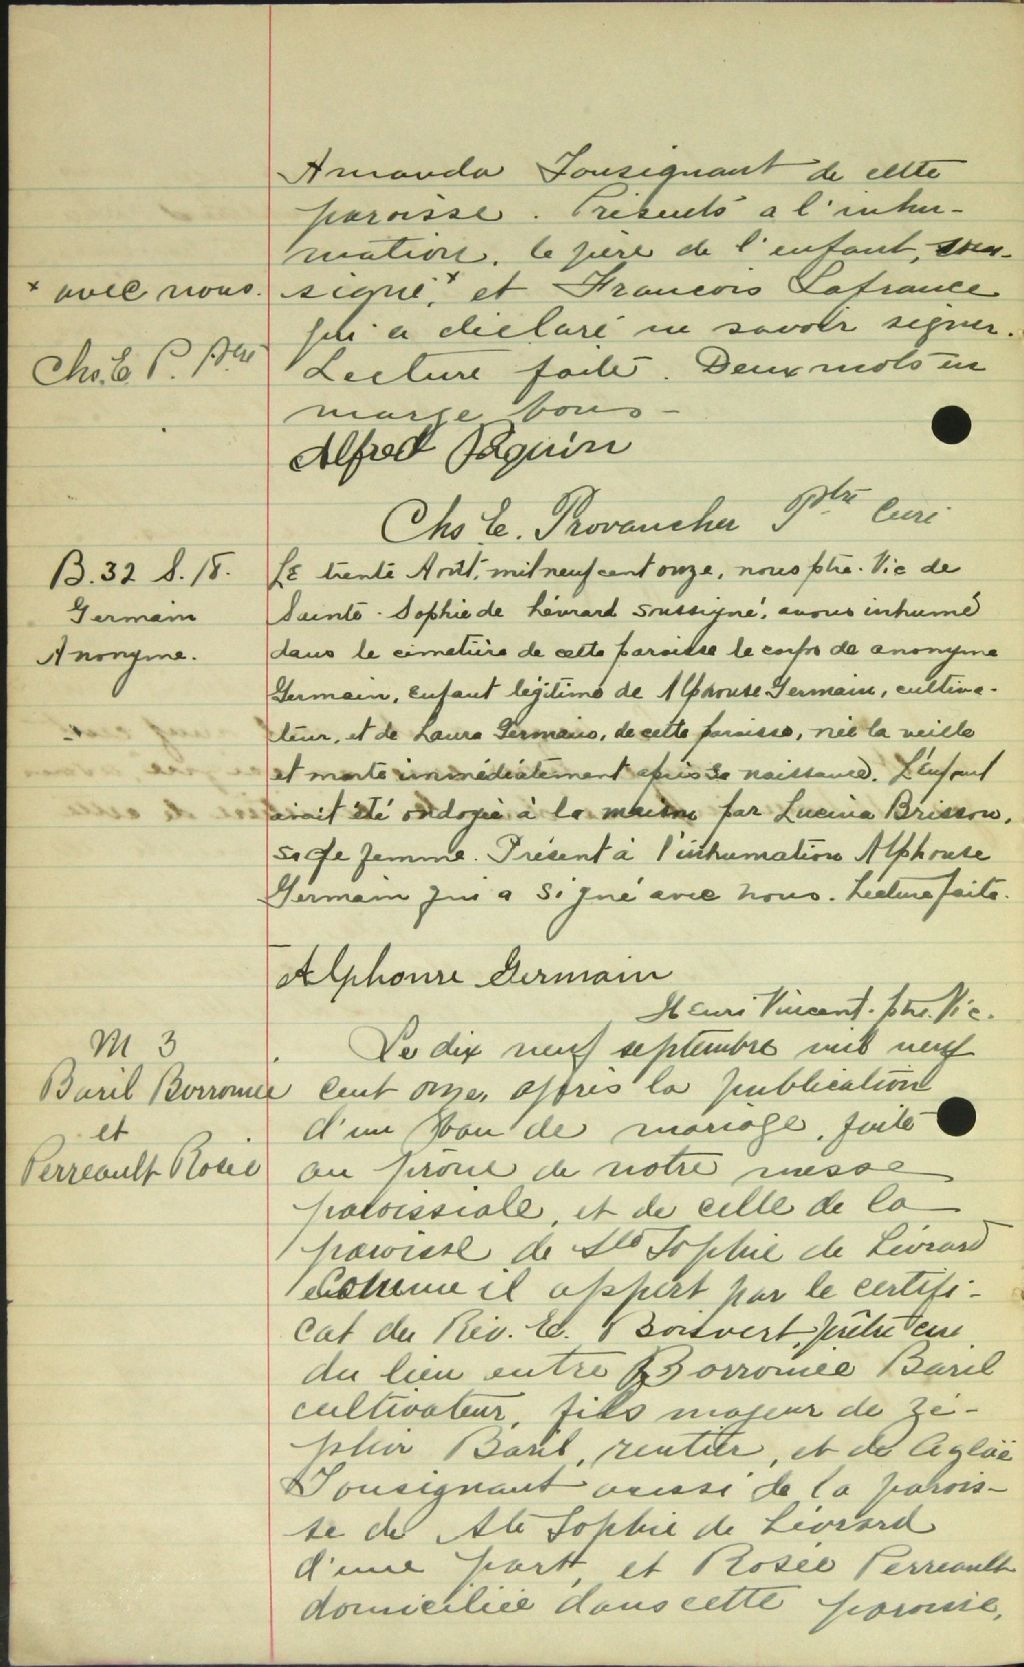 Amanda Tousignant de cette
paroisse. Présents a l'inhu-
mation, le père de l'enfant, sous-
x avec nous.
signé,x et Francois Lafrance
qui a déclaré ne savoir signer.
Chs. E. P. Ptre
Lecture faite. Deux mots en
marge bons -
Alfred Paquin
Chs E. Provancher Ptre Curé
B. 32 S. 18.
Germain
Anonyme.
Le trente Août, mil neuf cent onze, nous ptre. Vic de
Sainte-Sophie de Lévrard soussigné, avons inhumé
dans le cimetière de cette paroisse le corps de anonyme
Germain, enfant légitime de Alphonse Germain, cultiva-
teur, et de Laura Germain, de cette paroisse, née la veille
et morte immédiatement après sa naissance. L'Enfant
avait été ondoyée à la maison par Lucina Brisson,
sage femme. Présent à l'inhumation Alphonse
Germain qui a signé avec nous. Lecture faite.
Alphonse Germain
Henri Vincent. ptre. Vic.
M 3
Baril Borromée
et
Perreault Rosée
Le dix neuf septembre mil neuf
cent onze, après la publication
d'un ban de mariage, faite
au prône de notre messe
paroissiale, et de celle de la
paroisse de Ste Sophie de Lévrard
comme il appert par le certifi-
cat du Rév. E. Boisvert, prêtre curé
du lieu entre Borromée Baril
cultivateur, fils majeur de Zé-
phir Baril, rentier, et de Aglaë
Tousignant aussi de la parois-
se de Ste Sophie de Lévrard
d'une part, et Rosée Perreault
domiciliée dans cette paroisse,